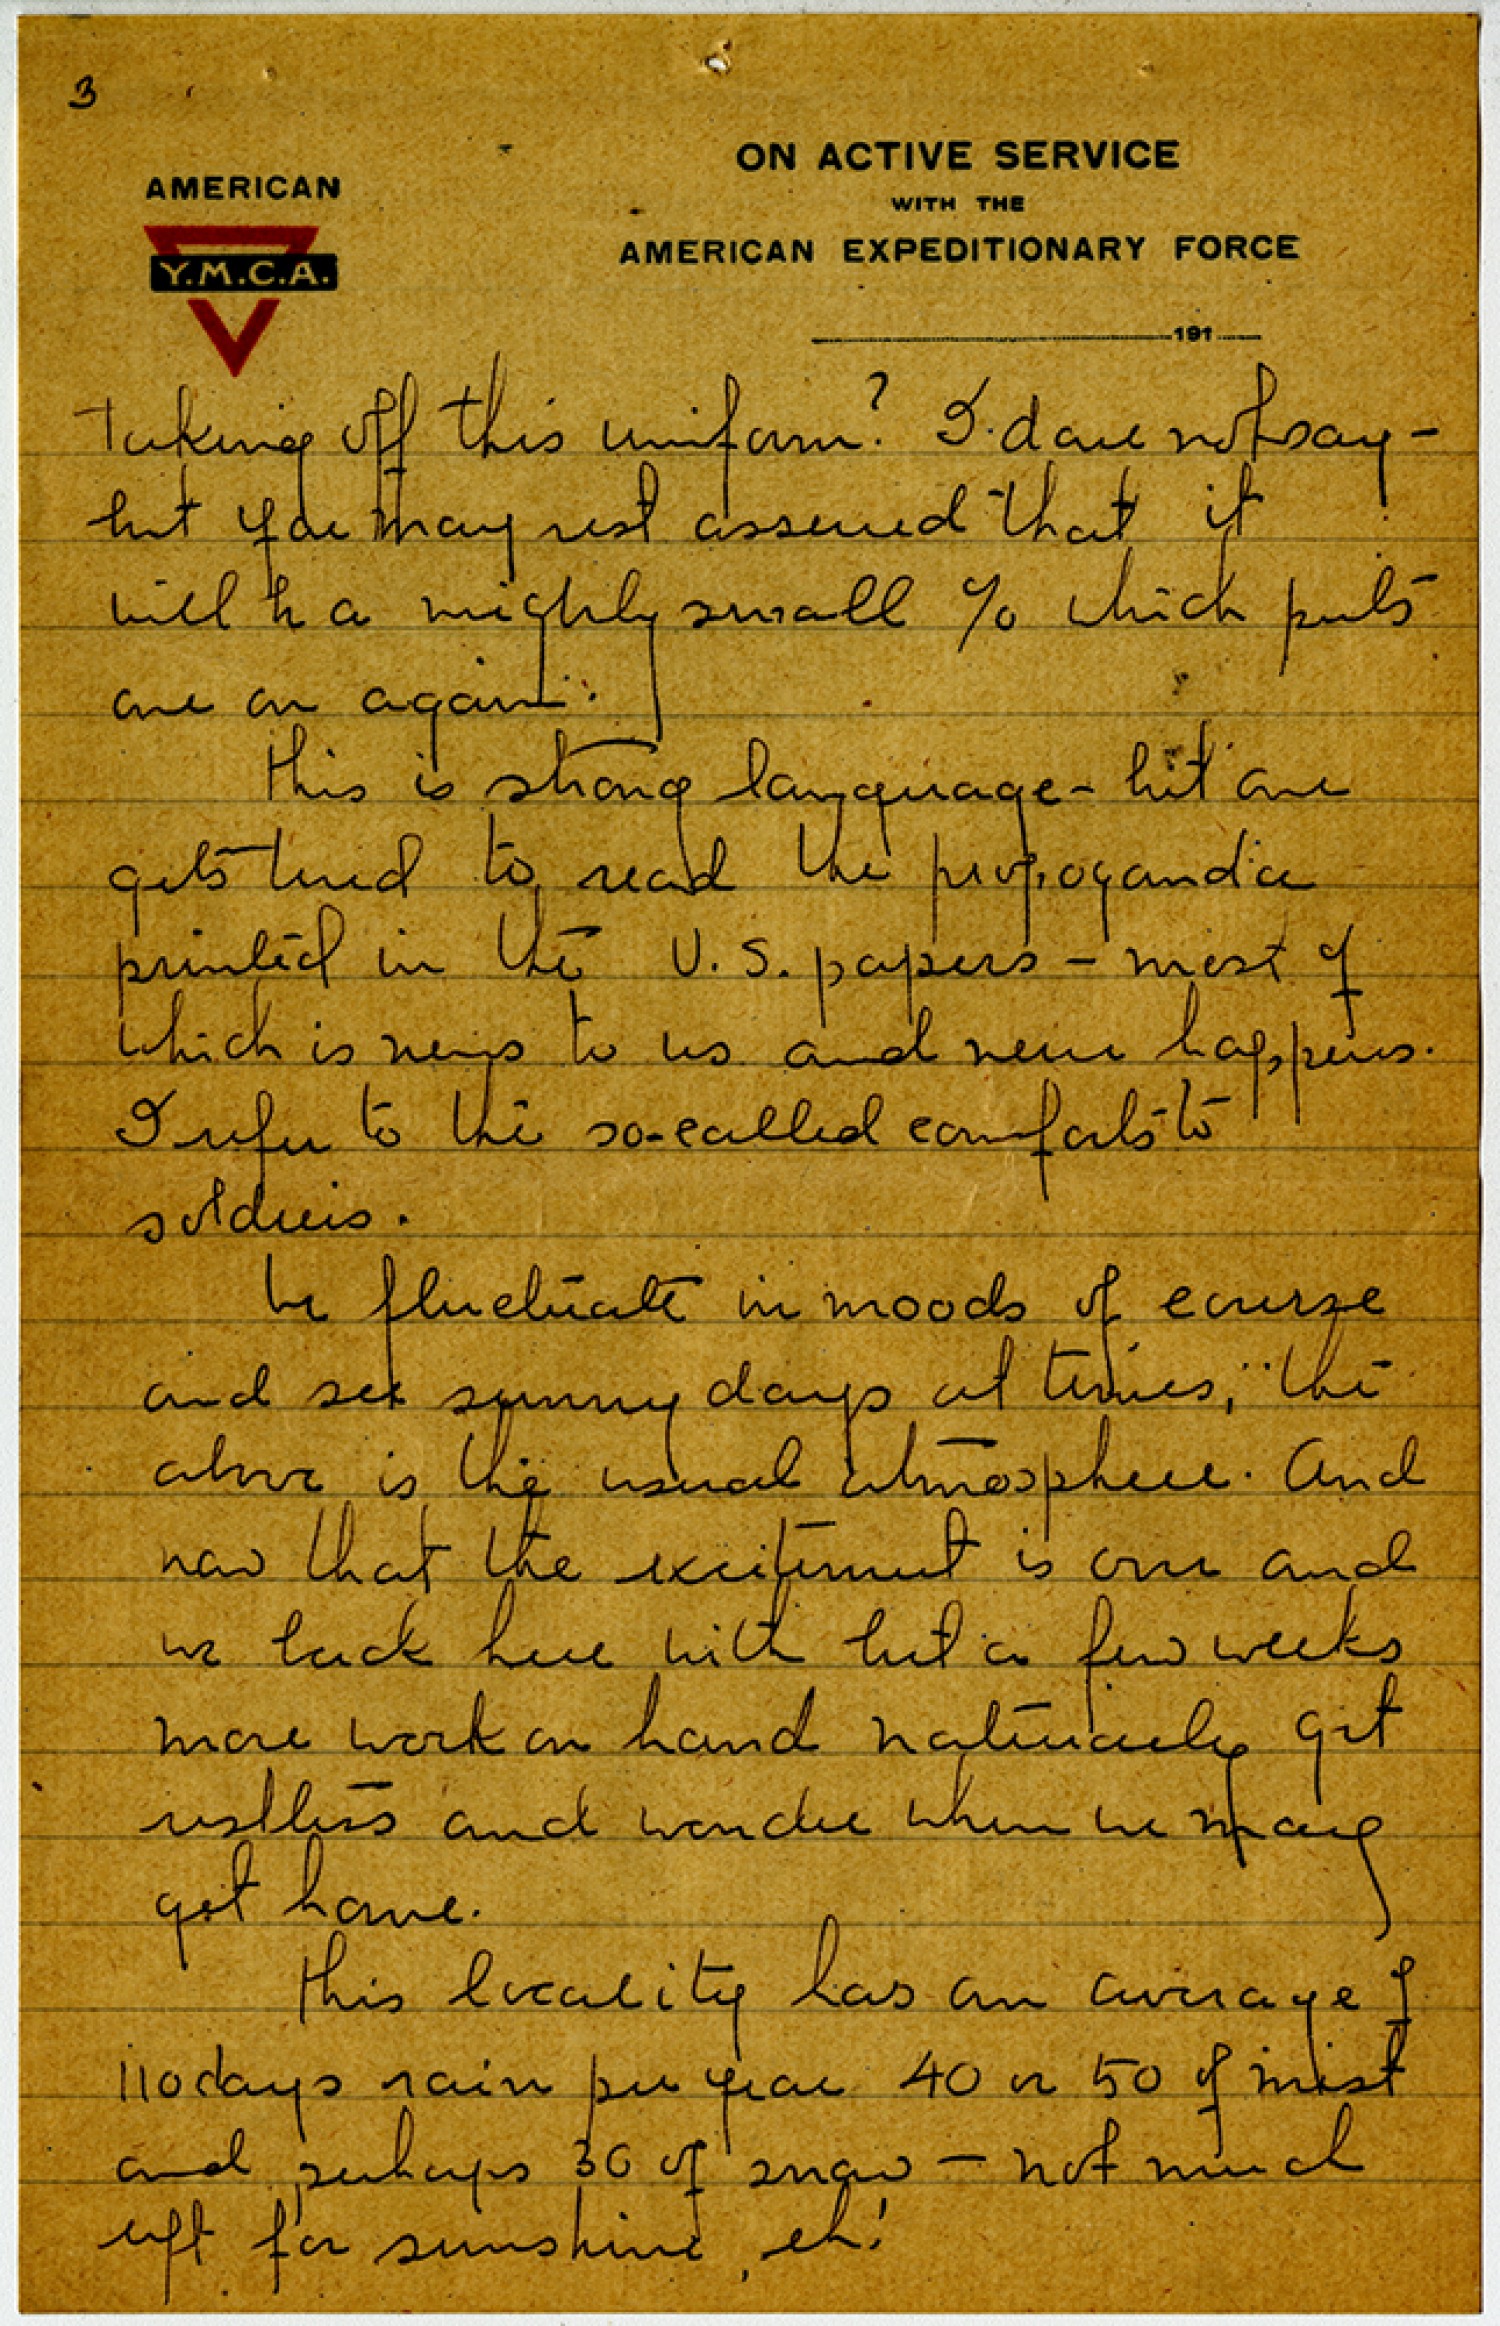 3
AMERICAN
Y.M.C.A.
ON ACTIVE SERVICE
WITH THE
AMERICAN EXPEDITIONARY FORCE
191
taking off this uniform? I dare not say -
but you may rest assured that it
will be a mighty small % which puts
one on again.
This is strong language - but one
gets tired to read the propoganda
printed in the U.S. papers - most of
which is news to us and never happens.
I refer to the so-called comforts to
soldiers.
We fluctuate in moods of course
and see sunny days at times, the
above is the usual atmosphere. And
now that the excitement is over and
we back here with but a few weeks
more work on hand naturally get
restless and wonder when we may
get home.
This locality has an average of
110 days rain per year 40 or 50 of mist
and perhaps 30 of snow - not much
left for sunshine, eh!